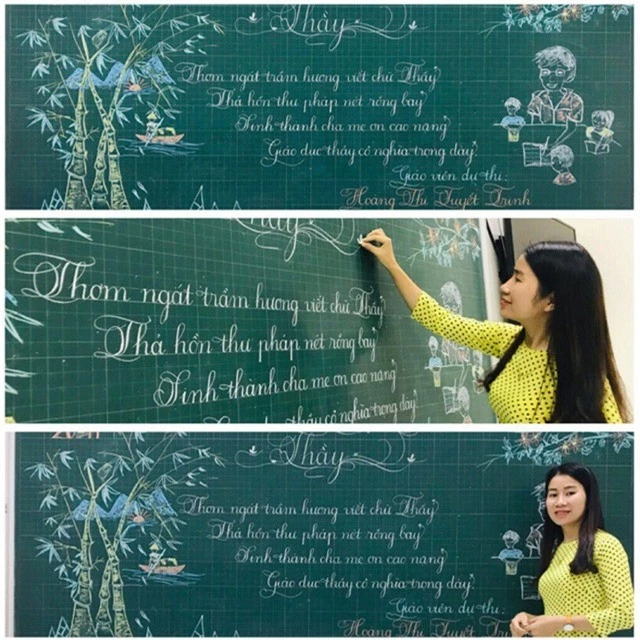 Thầy
Thơm ngát trầm hương viết chữ Thầy
Thả hồn thư pháp nét rồng bay
Sinh thành cha mẹ ơn cao nặng
Giáo dục thầy cô nghĩa trọng dày!
Giáo viên dự thi:
Hoàng Thị Tuyết Trinh
Thầy
Thơm ngát trầm hương viết chữ Thầy
Thả hồn thư pháp nét rồng bay
Sinh thành cha mẹ ơn cao nặng
thầy cô nghĩa trọng dày!
Thầy
Thơm ngát trầm hương viết chữ Thầy
Thả hồn thư pháp nét rồng bay
Sinh thành cha mẹ ơn cao nặng
Giáo dục thầy cô nghĩa trọng dày!
Giáo viên dự thi:
Hoàng Thị Tuyết